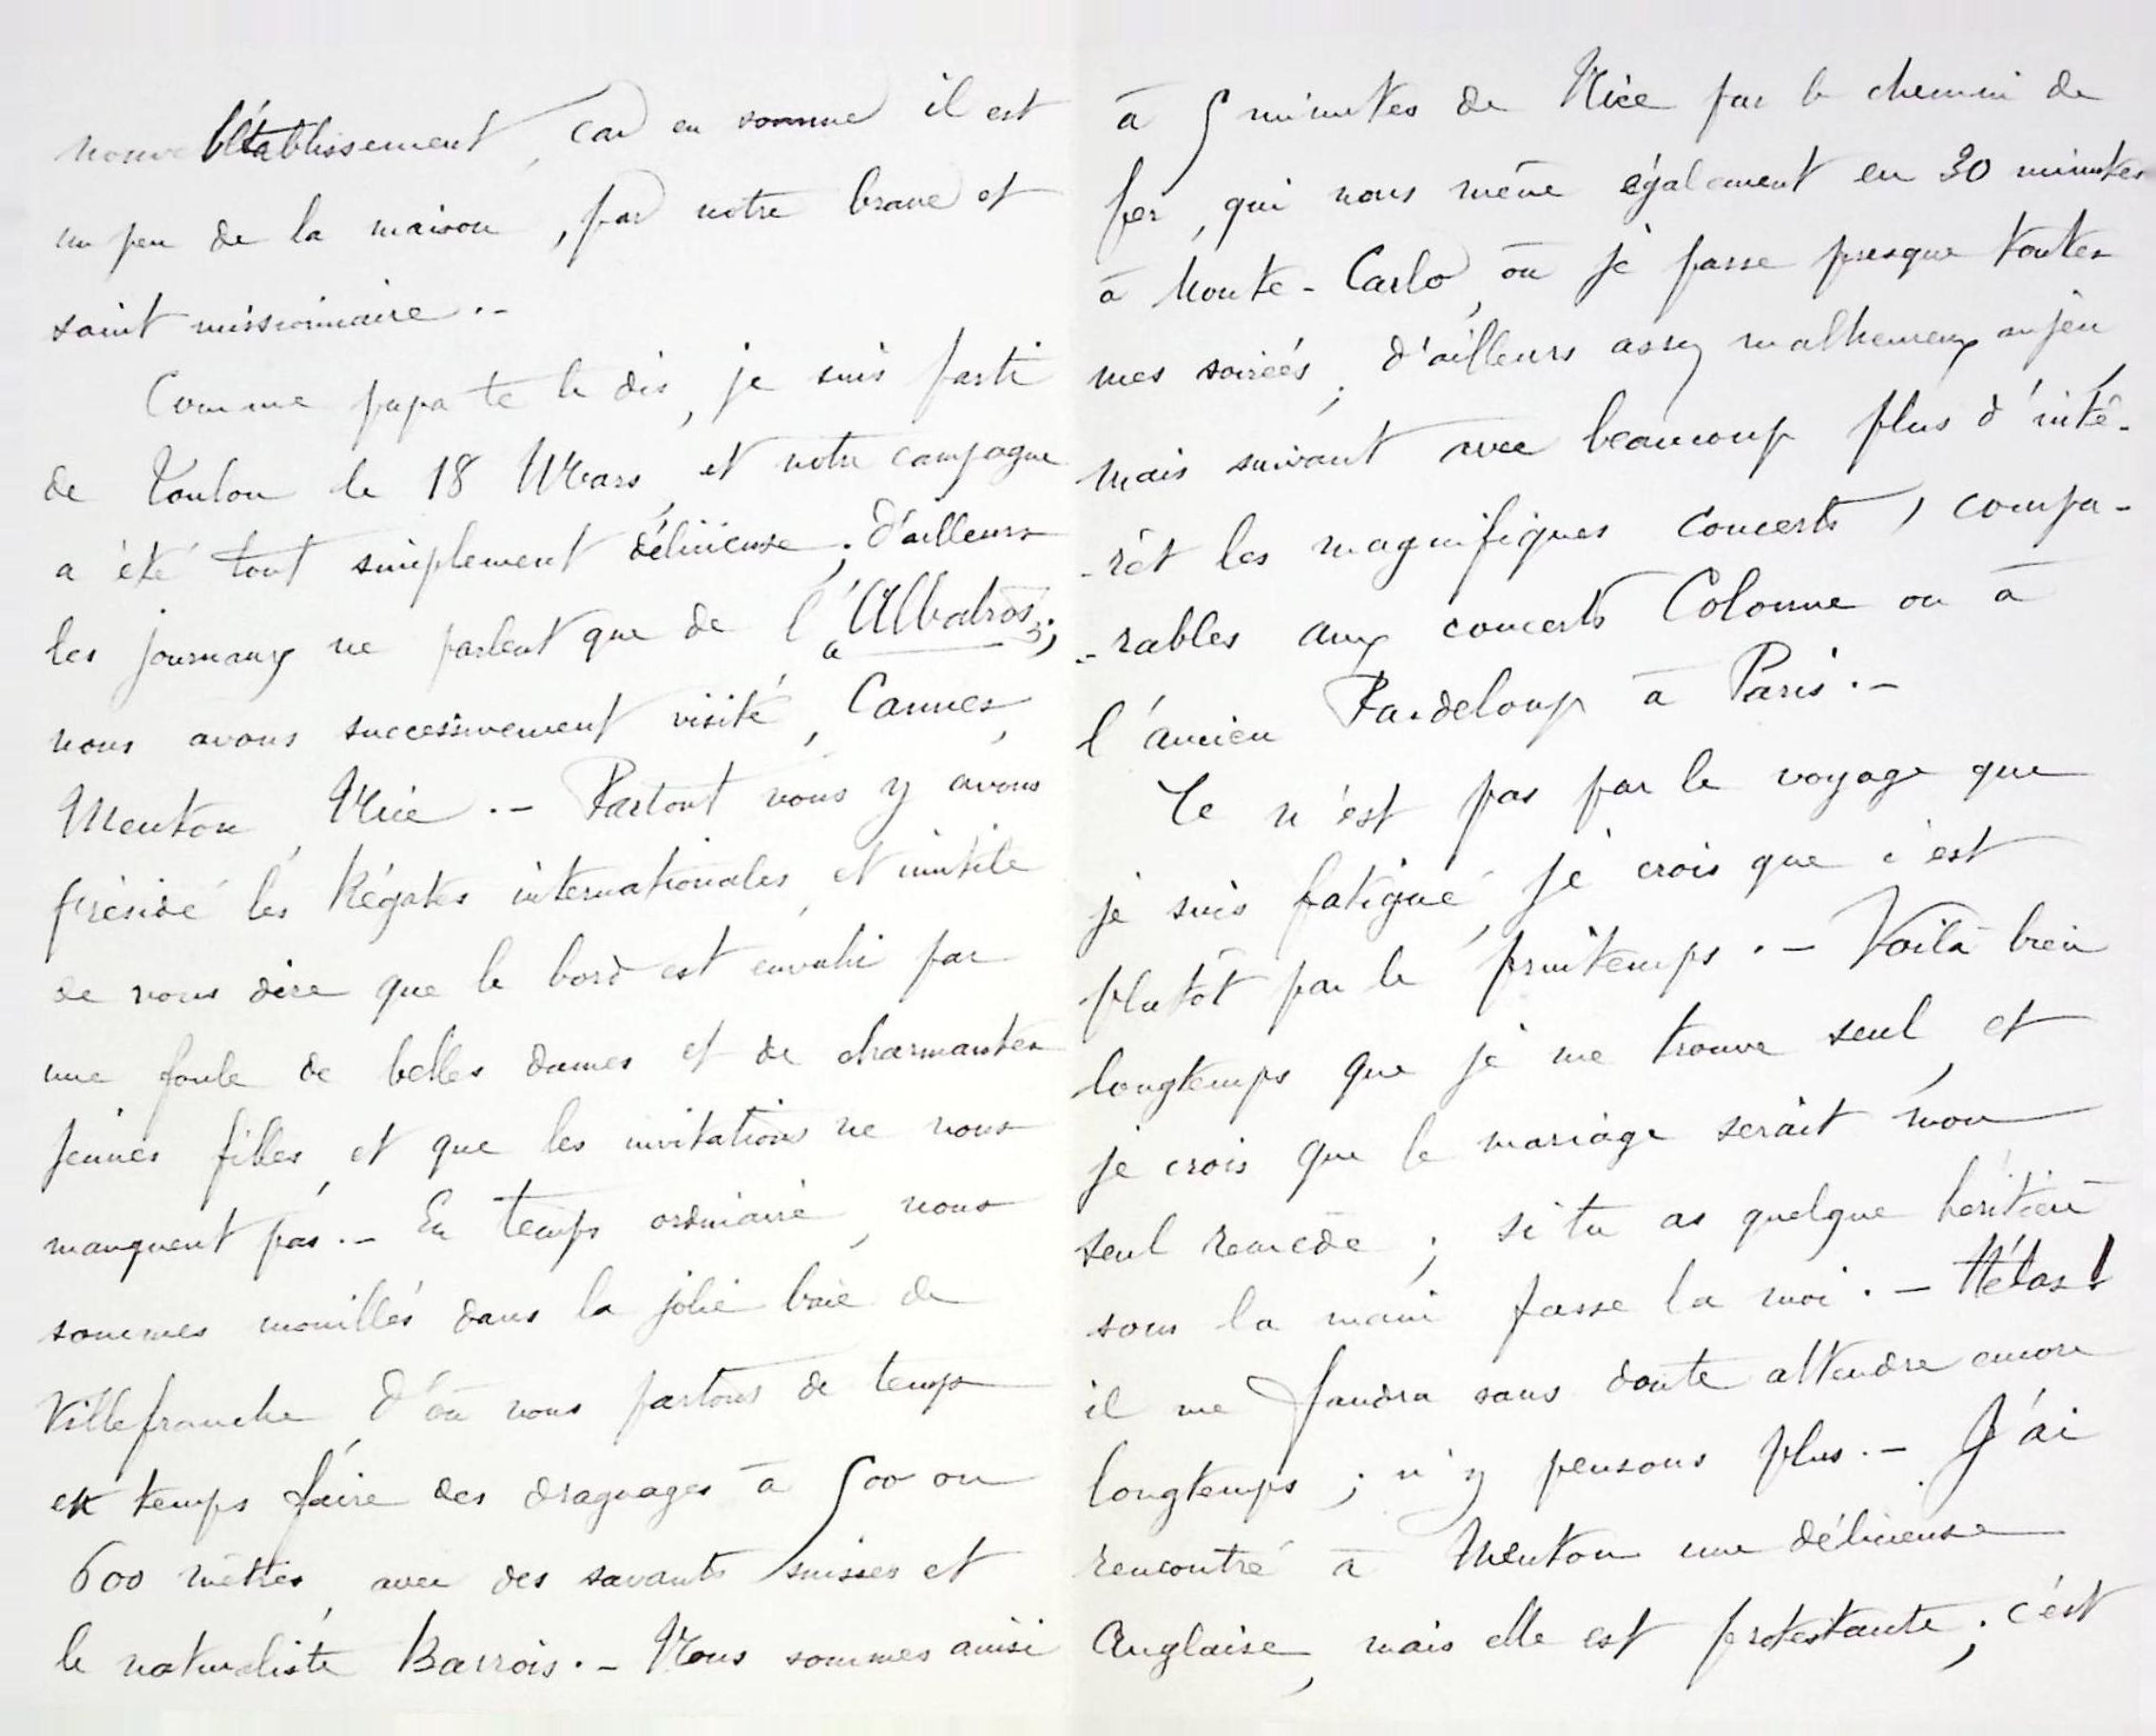 nouvel établissement, car en somme il est
un peu de la maison, par notre brave et
saint missionnaire. -
Comme papa te le dis, je suis parti
de Toulon le 18 Mars, et notre campagne
a été tout simplement délicieuse; d'ailleurs
les journaux ne parlent que de l'Albatros;
nous avons successivement visité, Cannes,
Menton, Nice. - Partout nous y avons
présidé les Régates internationales, et inutile
de vous dire que le bord est envahi par
une foule de belles dames et de charmantes
jeunes filles, et que les invitations ne nous
manquent pas. - En temps ordinaire, nous
sommes mouillés dans la jolie baie de
Villefranche, d'où nous partons de temps
en temps faire des draguages à 500 ou
600 mètres, avec des savants suisses et
le naturaliste Barrois. - Nous sommes ainsi
à 5 minutes de Nice par le chemin de
fer, qui nous mène également en 30 minutes
à Monte-Carlo, où je passe presque toutes
mes soirées; d'ailleurs assez malheureux au jeu,
mais suivant avec beaucoup plus d'inté-
-rêt les magnifiques concerts, compa-
-rables aux concerts Colonne ou à
l'ancien Pasdeloup à Paris. -
Ce n'est pas par le voyage que
je suis fatigué, je crois que c'est
plutôt par le printemps. - Voilà bien
longtemps que je me trouve seul, et
je crois que le mariage serait mon
seul remède; si tu as quelque héritière
sous la main passe la moi. - Hélas!
il me faudra sans doute attendre encore
longtemps; n'y pensons plus. - J'ai
rencontré à Menton une délicieuse
Anglaise, mais elle est protestante; c'est